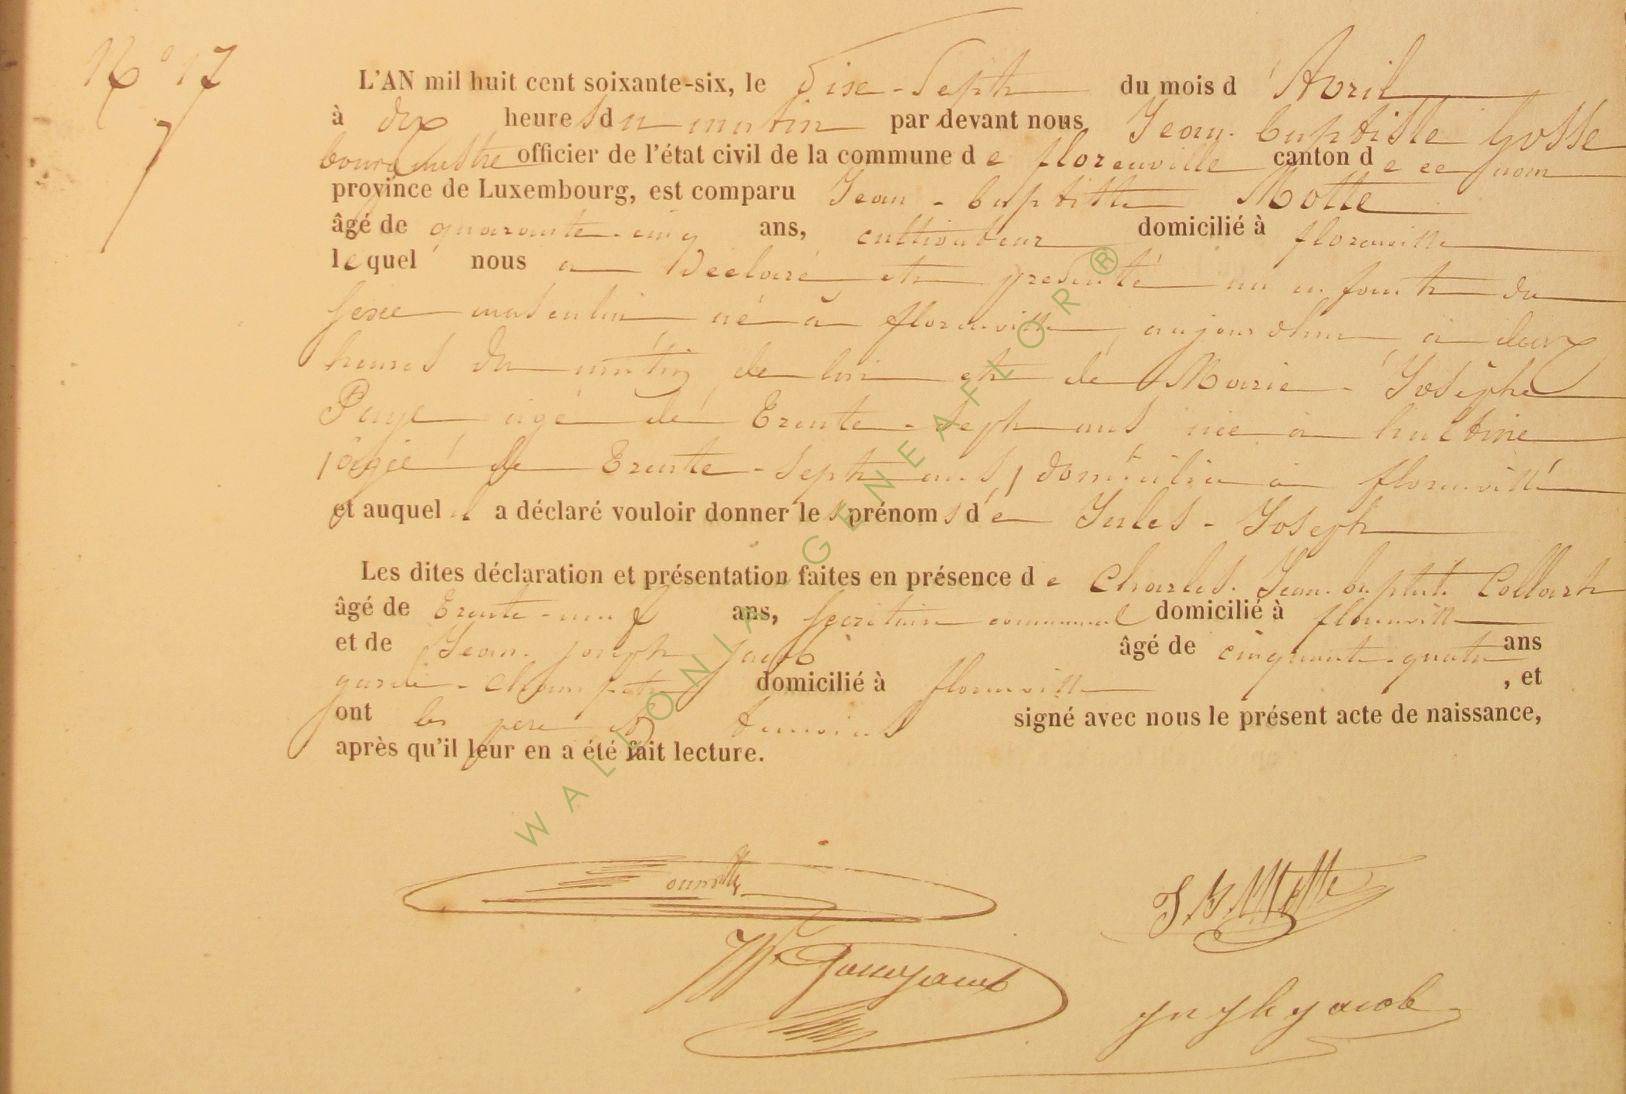 N° 17
L'AN mil huit cent soixante-six, le Dix-Sept du mois d'Avril
à dix heures du matin par devant nous Jean-baptiste Gosse
bourgmestre officier de l'état civil de la commune de florenville canton de ce nom
province de Luxembourg, est comparu Jean-baptiste Motte
âgé de quarante-cinq ans, cultivateur domicilié à florenville
lequel nous a Déclaré et presenté un enfant du
sexe masculin né à florenville, aujourdhui à deux
heures du matin, de lui et de Marie-Josèphe
age de Trente-sept ans née à
/agée de Trente-sept ans,/ domiciliée à florenville
et auquel il a déclaré vouloir donner les prénoms de Jules-Joseph
Les dites déclaration et présentation faites en présence de Charles Jean-baptiste Collart
âgé de Trente-neuf ans, Secrétaire communal domicilié à florenville
et de Jean-joseph jacob âgé de cinquante-quatre ans
garde-Champêtre domicilié à florenville, et
ont les père et témoins signé avec nous le présent acte de naissance,
après qu'il leur en a été fait lecture.
J.B. Motte
jacob
WALLONIA-GENEAFLOR ®